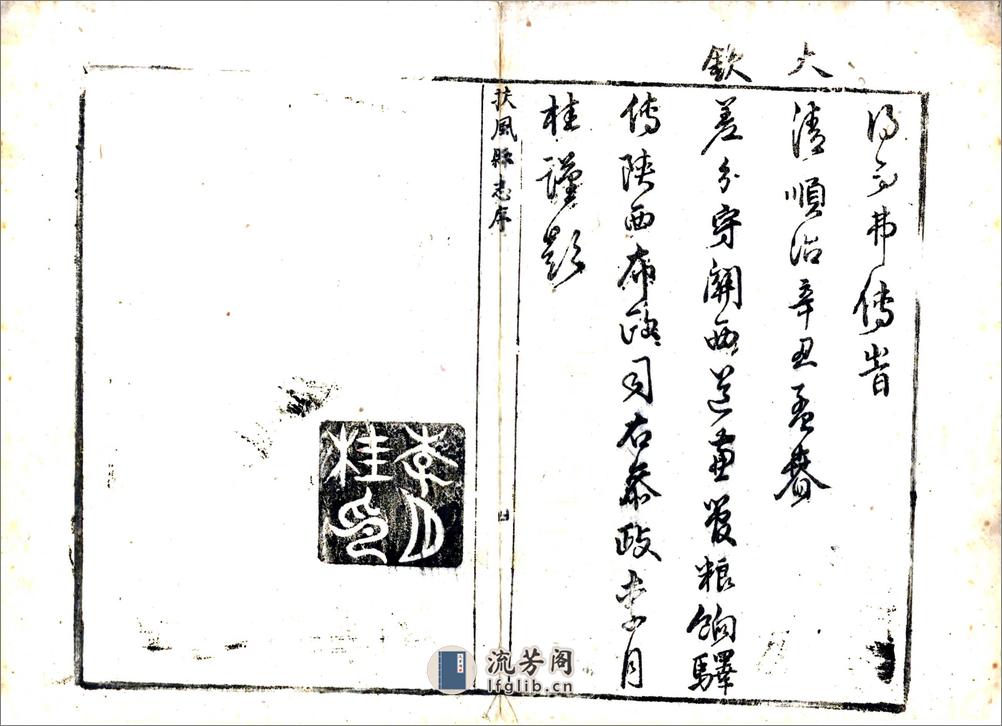 弗傳旹
大清順治辛丑孟春
欽差分守關西道兼管粮餉驛
傳陝西布政司右叅政李月
桂謹
扶風縣志序
李月桂印
流芳阁
lfglib.cn